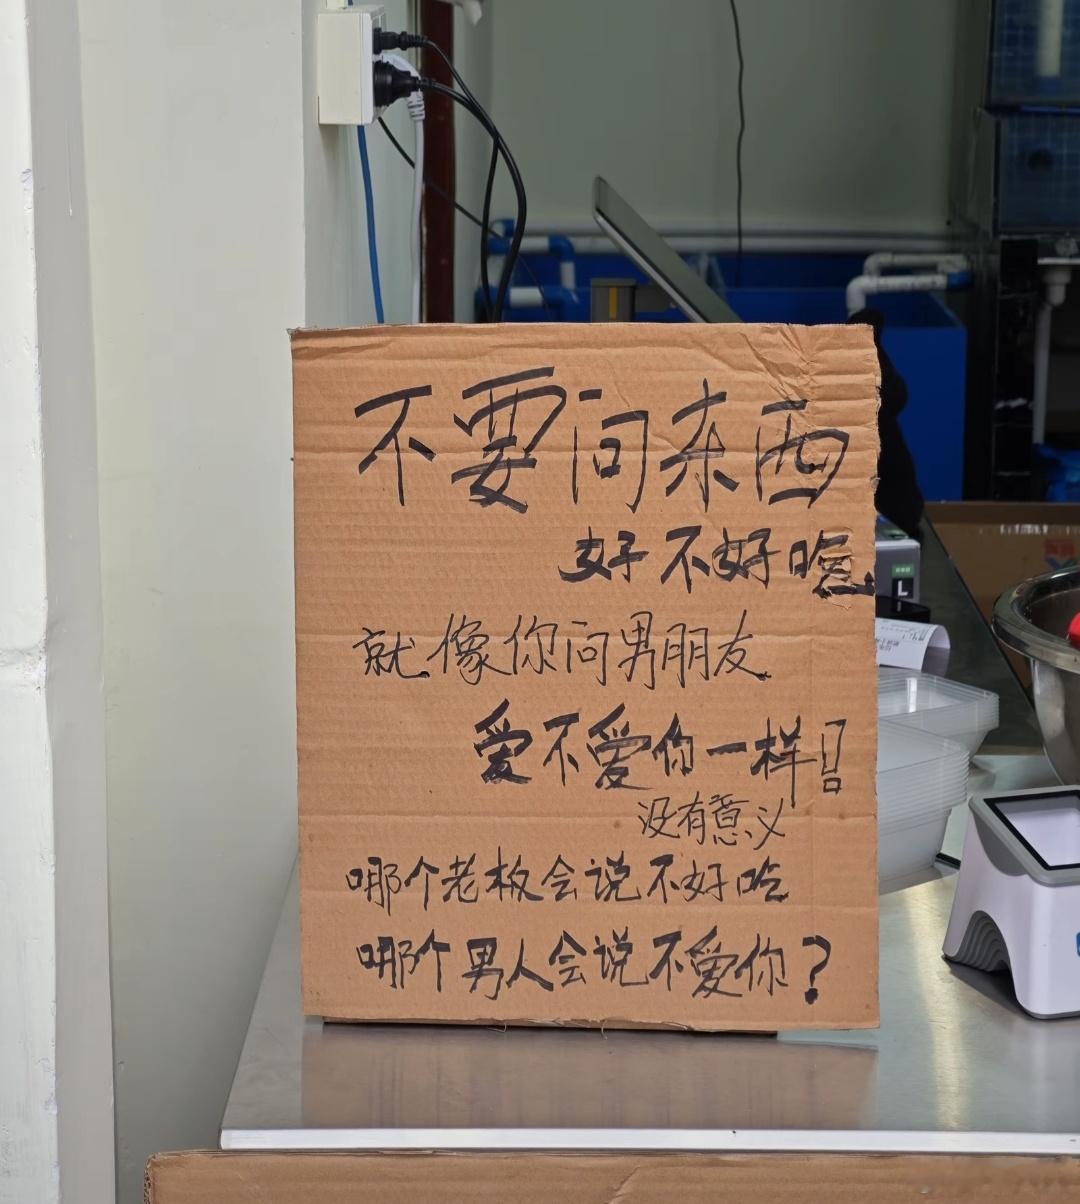 不要问东西
好不好吃
就像你问男朋友
爱不爱你一样!
没有意义
哪个老板会说不好吃
哪个男人会说不爱你?
L